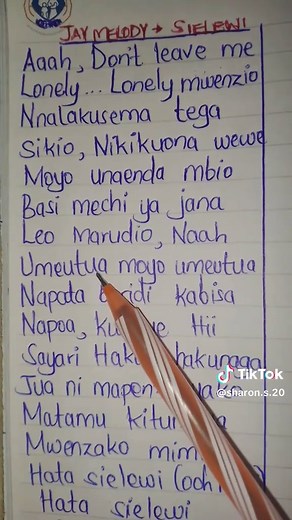 JAY MELODY → SIELEWI
Aaah, Don't leave me
Lonely... Lonely mwenzio
Nnalakusema tega
Sikio, Nikikuona wewe
Moyo unaenda mbio
Basi mechi ya jana
Leo Marudio, Naah
Umeutua moyo umeutua
Napata kabisa
Napoa, Hii
Sayari hakunaga
Jua ni
Matamu
Mwenzako
Hata sielewi (ooh
Hata sielewi
TikTok
@sharon.s.20